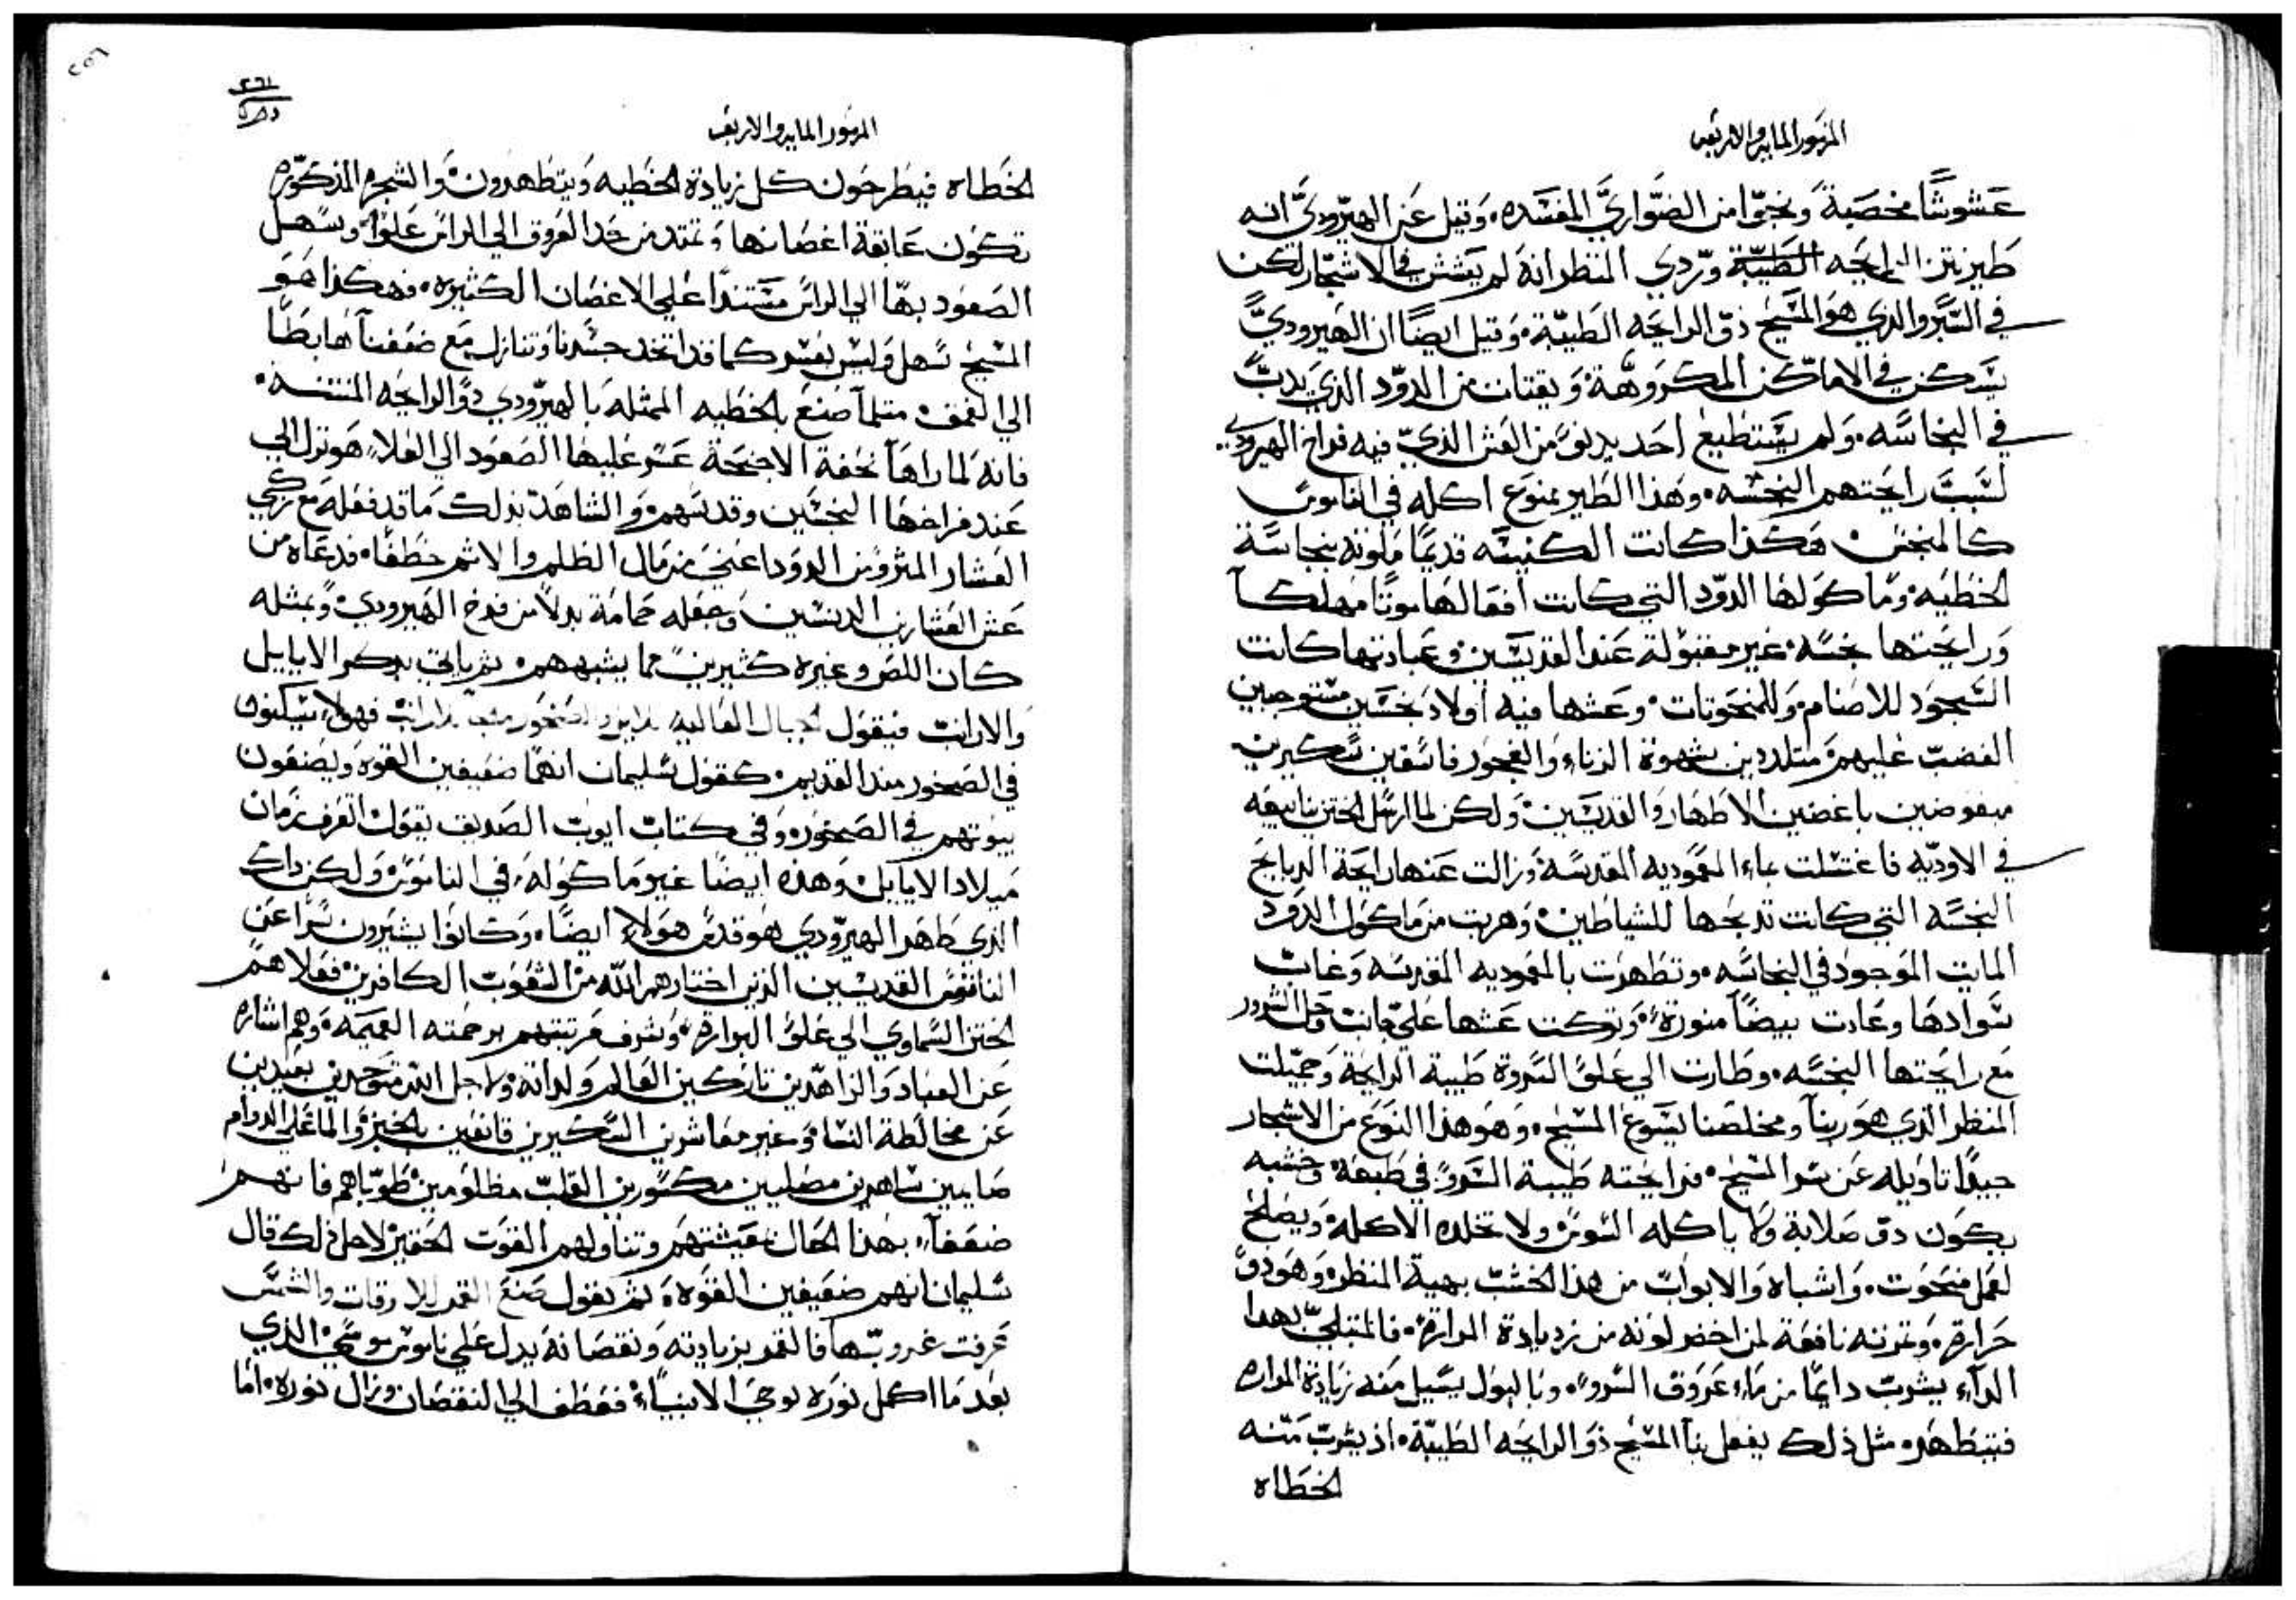 المزمور المايه والاربعه
عشوشًا مخصبة وتنجوا من الضواري المفسده، وقيل عن الهيرودي انه
طير نتن الرايحه الطيبة وردي المنظر انه لم يعشش في الاشجار لكن
في السرو الذي هو المسيح ذو الرايحه الطيبة، وقيل ايضًا ان الهيرودي
يسكن في الاماكن المكروهة ويقتات من الدود الذي يدب
في النجاسه، ولم يستطيع احد يدنو من العش الذي فيه فراخ الهيرودي،
لسبب رايحتهم النجسه، وهذا الطير ممنوع اكله في الناموس
كالمنجس، هكذا كانت الكنيسه قديمًا ملوثه بنجاسة
الخطيه، وماكولها الدود التي كانت افعالها موتًا مهلكًا
ورايحتها نجسه غير مقبولة عند القديسين، وعبادتها كانت
السجود للاصنام والمنحوتات، وعشها فيه اولاد نجسين مستوجبين
الغضب عليهم متلددين بشهوة الزناء والفجور فاسقين سكيرين
مبغوضين باغضين الاطهار والقديسين، ولكن لما ارسل الختن ينابيعه
في الاوديه فاغتسلت بماء المعموديه المقدسة وزالت عنها رايحة الدبايح
النجسه التي كانت تدبحها للشياطين، وهربت من ماكول الدود
المايت الموجود في النجاسه، وتطهرت بالمعموديه المقدسه وغاب
سوادها وعادت بيضآ منورة، وتركت عشها على جانب وحل الشرور
مع رايحتها النجسه، وطارت الي علو السروة طيبة الرايحة وجميلت
المنظر الذي هو ربنا ومخلصنا يسوع المسيح، وهو هذا النوع من الاشجار
جيدًا تاويله عن سر المسيح، فرايحته طيبة السرو في طبعه، وخشبه
يكون دو صلابة ولا ياكله السوس ولا تخلده الاكله، ويصلح
لعمل منحوت، واشباه والابواب من هذا الخشب بهية المنظر، وهو ذو
حرارة، وثمرته نافعة لمن اخضر لونه من زديادة المرارة، فالمتبلي بهدا
الدآء يشرب دايمًا من مآء عروق السرو، وبالبول يسيل منه زيادة المراره
فيتطهر، مثل ذلك يفعل بنا المسيح ذو الرايحه الطيبة، اذ يشرب منه
الخطاه
المزمور المايه والاربعه
الخطاه فيطرحون كل زيادة الخطيه ويتطهرون، والشجره المذكوره
تكون عابقة اغصانها وتمتد من حد العروق الي الراس علوًا، ويسهل
الصعود بها الي الراس مستندًا علي الاغصان الكثيره، فهكذا هو
المسيح سهل وليس بعسر كما قد اتخد جسدنا وتنازل مع ضعفنا هابطًا
الي العمق، مثلما صنع بالخطيه الممثله بالهيرودي ذو الرايحه المنتنة،
فانه لما راها نحفة الاجنحة عسر عليها الصعود الي العلاء، هو نزل الي
عند فراخها النجسين وقدسهم، والشاهد بذلك ما قد فعله مع زكي
العشار المثرو من الدود اعني من مال الظلم والاثم خطفًا، فدعاه من
عش العشارين الدنسين وجعله حمامة بدلاً من فرخ الهيرودي، وبمثله
كان اللص وغيره كثيرين مما يشبههم، ثم ياتي بدكر الايايل
والارانب فيقول الجبال العاليه للايل والصخور ملجا للارانب فهولاء يسكنون
في الصخور مند القديم، كقول سليمان انهما ضعيفين القوه ويضعون
بيوتهم في الصخور، وفي كتاب ايوب الصديق يقول اتعرف زمان
ميلاد الايايل، وهذه ايضًا غير ماكوله، في الناموس، ولكن داك
الذي طهر الهيرودي هو قدس هولاء ايضًا، وكانوا يشيرون سرًا عن
القديسين الذين اختارهم الله من الشعوب الكافرين، فعلاهم
الختن السماوي الي علو البرارة، وشرف مرتبتهم برحمته العميمه، وهم اشاره
عن العباد والزاهدين تاركين العالم ولداته، ولاجل الله متوحدين بعيدين
عن مخالطة النسا وغير معاشرين السكيرين قانعين بالخبز والما علي الدوام
صايمين ساهرين مصليين مكسورين القلب مظلومين، طوباهم فانهم
ضعفآء بهذا الحال بمعيشتهم وتناولهم القوت الحقير، لاجل ذلك قال
سليمان انهم ضعيفين القوه، ثم يقول صنع القمر للاوقات والشمس
عرفت غروبها فالقمر بزيادته ونقصانه يدل علي ناموس موسي، الذي
بعد ما اكمل نوره بوحي الانبياء، فعطف الي النقصان، وزال نوره، اما